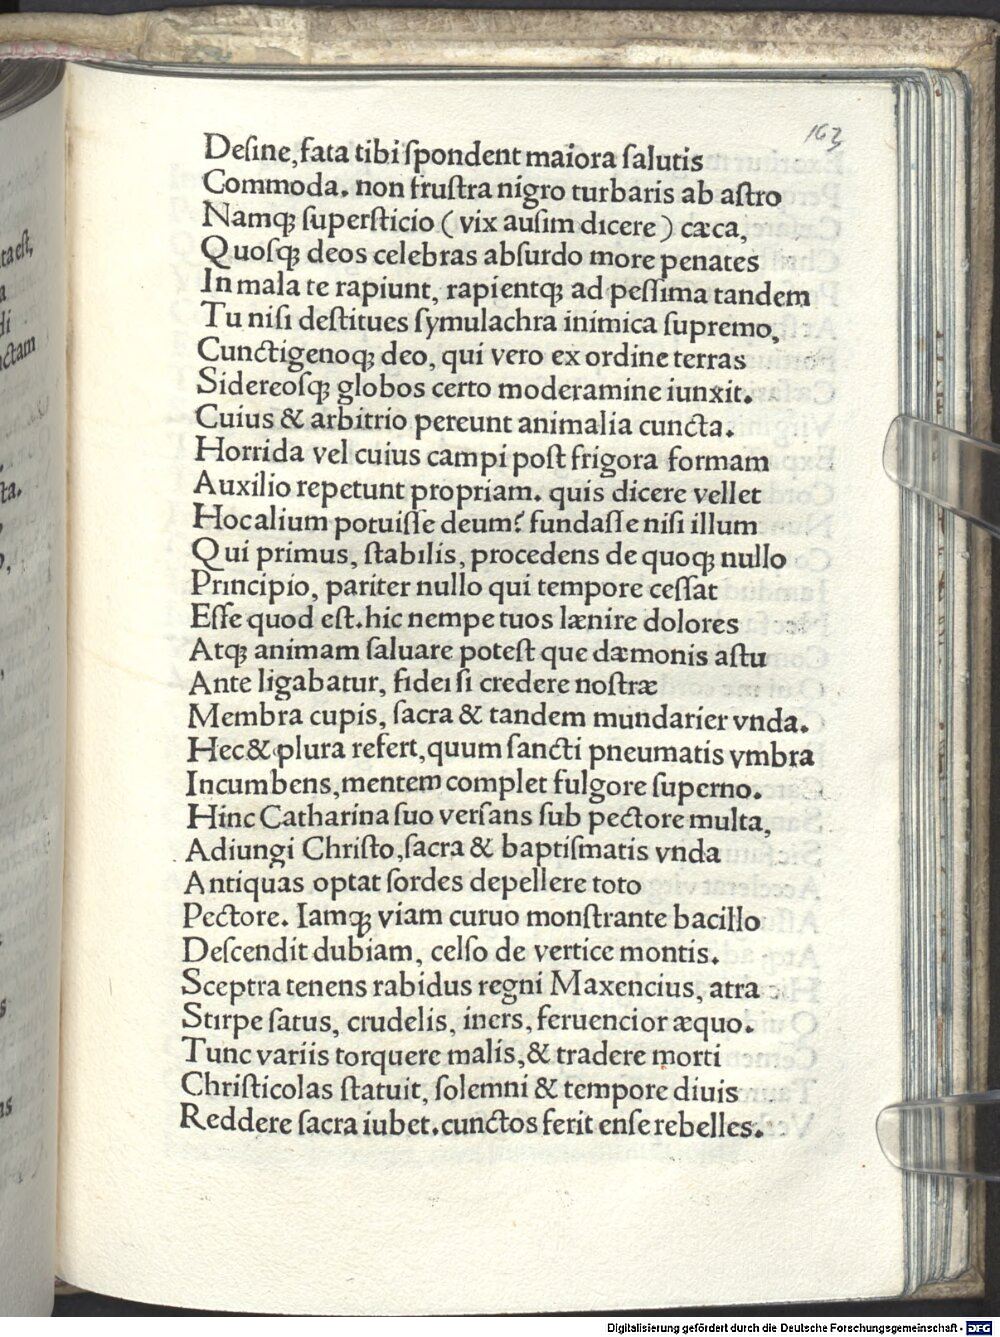 163
Deſine, fata tibi ſpondent maiora ſalutis
Commoda. non fruſtra nigro turbaris ab aſtro
Namqꝫ ſuperſticio ( vix auſim dicere ) cæca,
Quoſqꝫ deos celebras abſurdo more penates
In mala te rapiunt, rapientqꝫ ad peſſima tandem
Tu niſi deſtitues ſymulachra inimica ſupremo,
Cunctigenoqꝫ deo, qui vero ex ordine terras
Sidereoſqꝫ globos certo moderamine iunxit.
Cuius & arbitrio pereunt animalia cuncta.
Horrida vel cuius campi poſt frigora formam
Auxilio repetunt propriam. quis dicere vellet
Hoc alium potuiſſe deum? fundaſſe niſi illum
Qui primus, ſtabilis, procedens de quoqꝫ nullo
Principio, pariter nullo qui tempore ceſſat
Eſſe quod eſt. hic nempe tuos lænire dolores
Atqꝫ animam ſaluare poteſt que dæmonis aſtu
Ante ligabatur, fidei ſi credere noſtræ
Membra cupis, ſacra & tandem mundarier vnda.
Hec & plura refert, quum ſancti pneumatis vmbra
Incumbens, mentem complet fulgore ſuperno.
Hinc Catharina ſuo verſans ſub pectore multa,
Adiungi Chriſto, ſacra & baptiſmatis vnda
Antiquas optat ſordes depellere toto
Pectore. Iamqꝫ viam curuo monſtrante bacillo
Deſcendit dubiam, celſo de vertice montis.
Sceptra tenens rabidus regni Maxencius, atra
Stirpe ſatus, crudelis, iners, feruencior æquo.
Tunc variis torquere malis, & tradere morti
Chriſticolas ſtatuit, ſolemni & tempore diuis
Reddere ſacra iubet. cunctos ferit enſe rebelles.
Digitalisierung gefördert durch die Deutsche Forschungsgemeinschaft - DFG